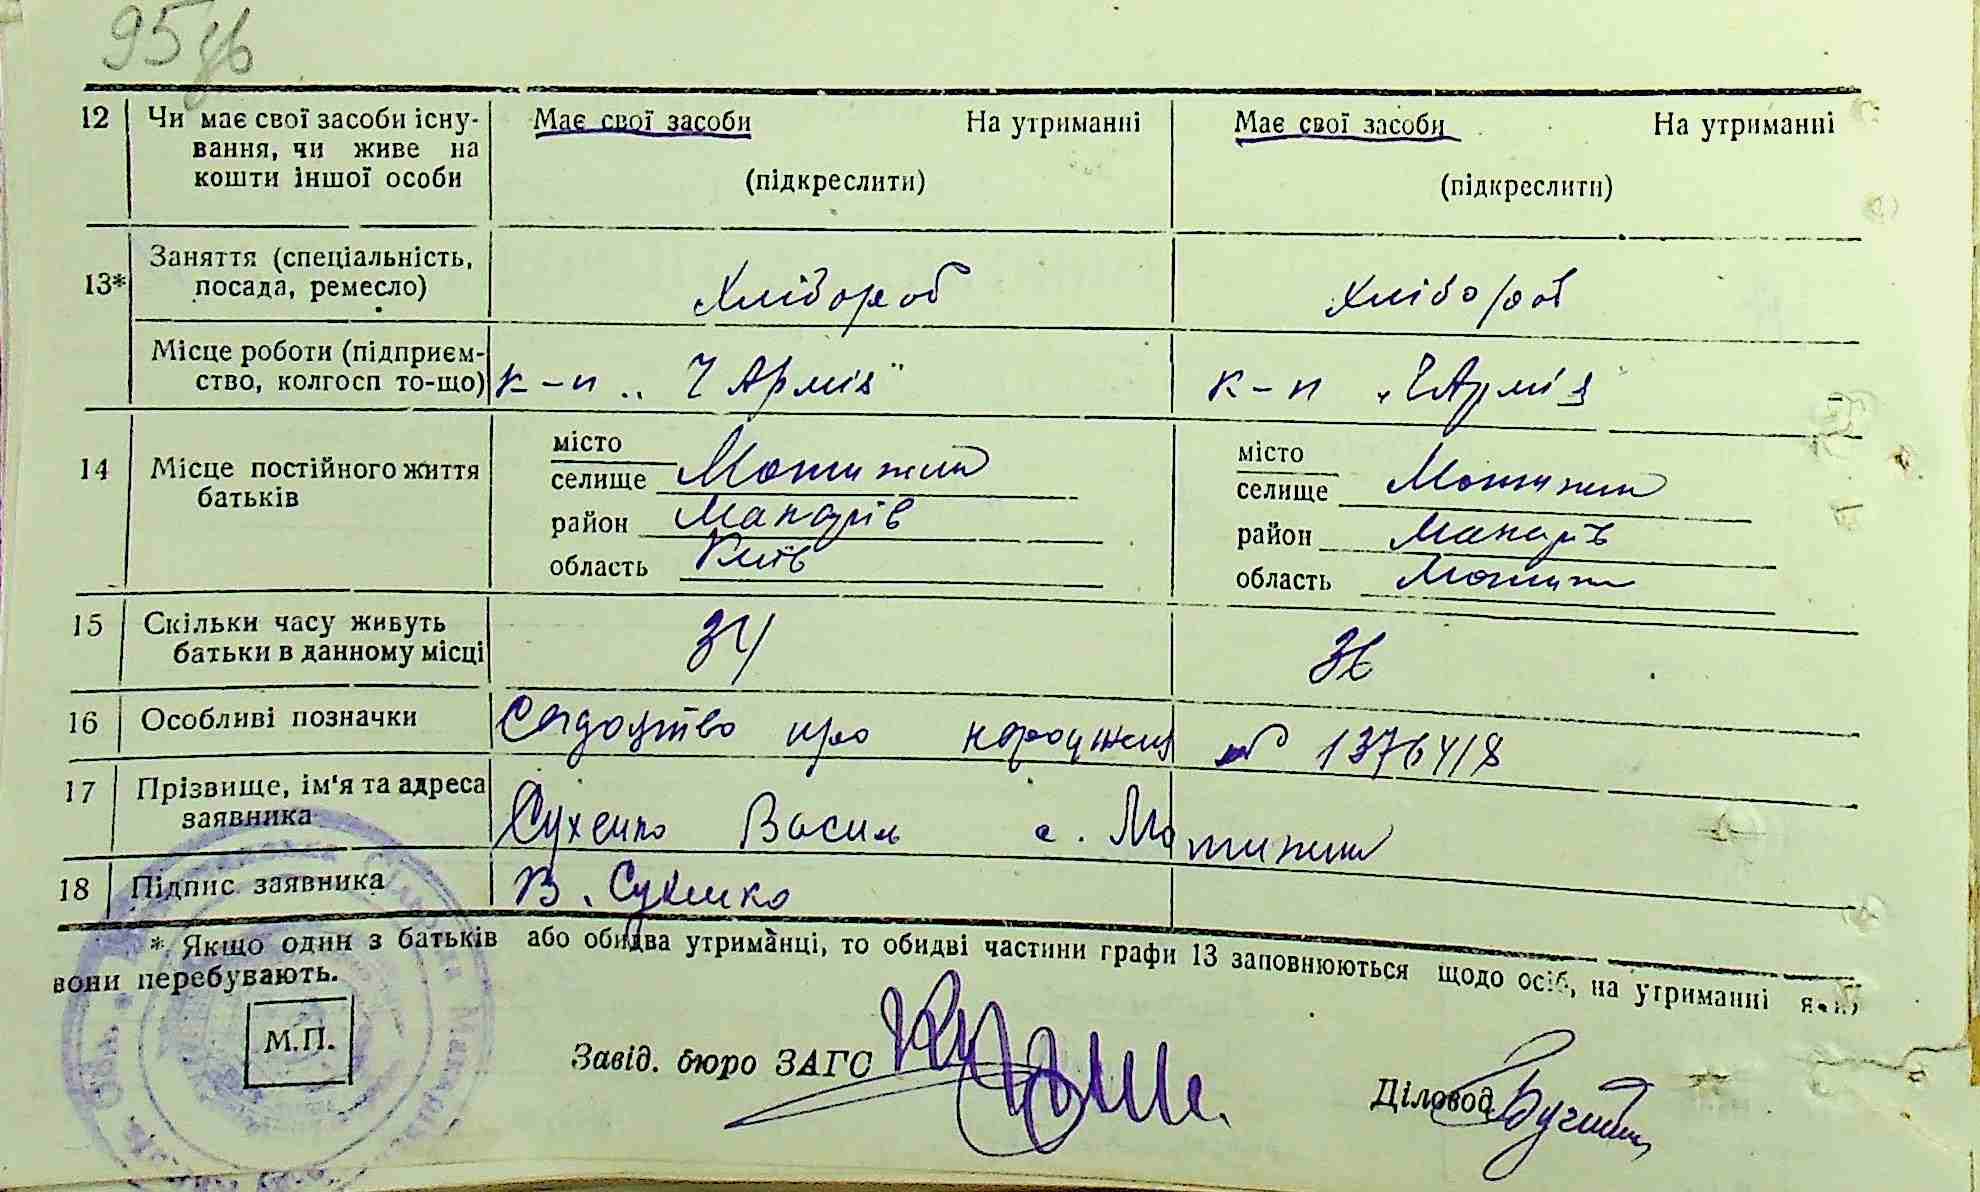 95зв
12 Чи має свої засоби існу- Має свої засоби На утриманні Має свої засоби На утриманні
вання, чи живе на
кошти іншої особи (підкреслити) (підкреслити)
Заняття (спеціальність,
13* посада, ремесло) Хлібороб Хлібороб
Місце роботи (підприєм-
ство, колгосп то-що) к-п „Ч Армія" к-п „Ч Армія"
місто місто
14 Місце постійного життя селище Мотижин селище Мотижин
батьків район Макарів район Макарів
область Київ область Мотижин
15 Скільки часу живуть 34 36
батьки в данному місці
16 Особливі позначки про народжен № 1376418
17 Прізвище, ім'я та адреса
заявника Сухенко Василь с. Мотижин
18 Підпис заявника В. Сухенко
* Якщо один з батьків або обидва утриманці, то обидві частини графи 13 заповнюються щодо осіб, на утриманні яких
вони перебувають.
М.П.
Завід. бюро ЗАГС
Діловод